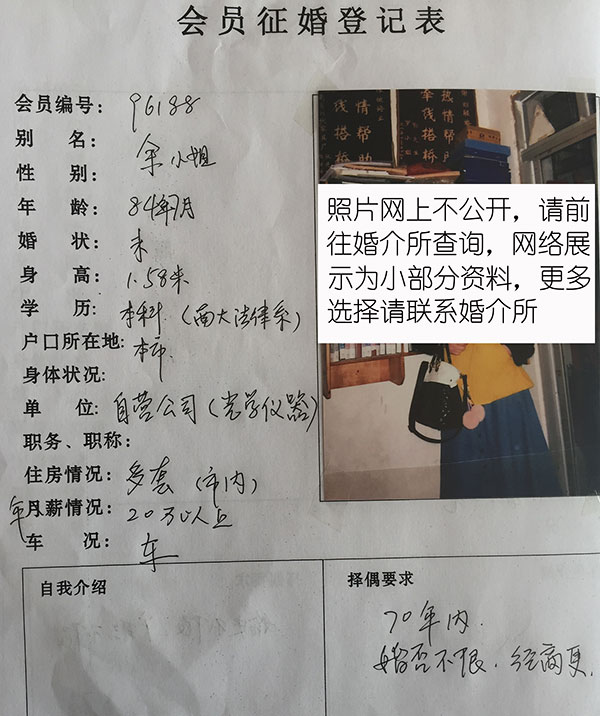 会员征婚登记表
会员编号: 96188
别 名: 余小姐
性 别:
年 龄: 84年7月
婚 状: 未
身 高: 1.58米
学 历: 本科 (西大法律系)
户口所在地: 本市.
身体状况:
单 位: 自营公司 (光学仪器)
职务、职称:
住房情况: 多套 (市内)
年 月薪情况: 20万以上
车 况: 车
牵线搭桥
热情帮助
照片网上不公开，请前
往婚介所查询，网络展
示为小部分资料，更多
选择请联系婚介所
自我介绍
择偶要求
70年内.
婚否不限. 经商更.